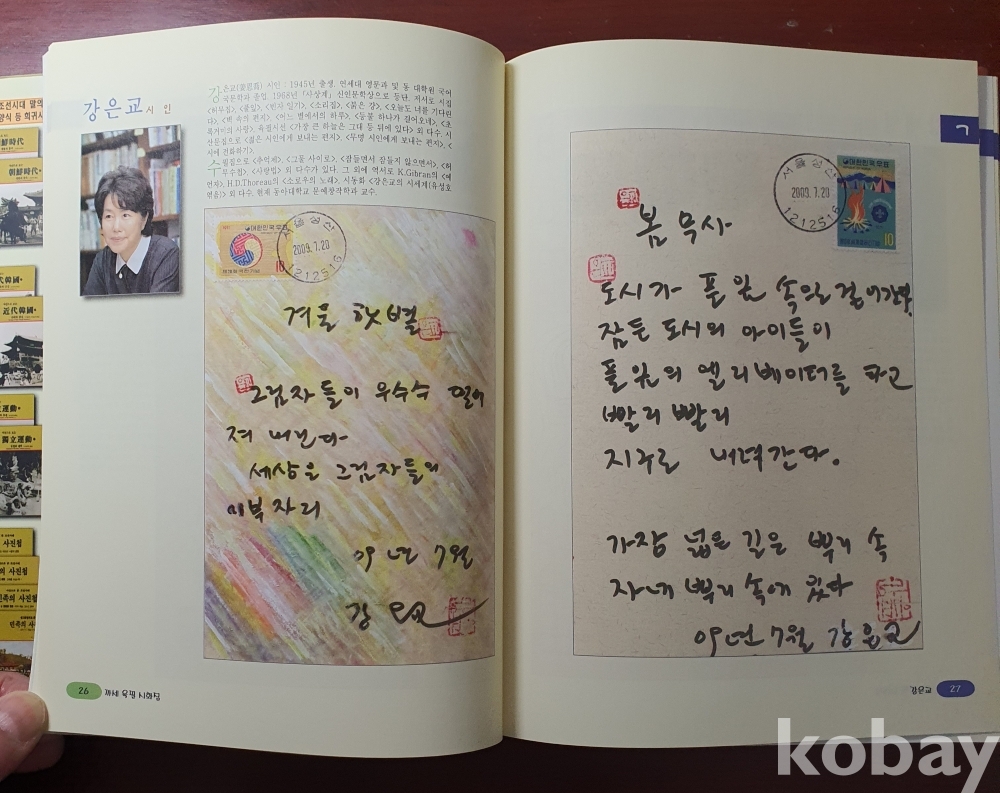 조선시대 말의
양식 등 희귀사
朝鮮時代
朝鮮時代
近代韓國
近代韓國
立運動
獨立運動
사진첩
의 사진첩
민족의 사진첩
민족의 사
강은교 시인
강은교(姜恩喬) 시인 : 1945년 출생. 연세대 영문과 및 동 대학원 국어
국문학과 졸업. 1968년 「사상계」 신인문학상으로 등단. 저서로 시집
<허무집>, <풀잎>, <빈자 일기>, <소리집>, <붉은 강>, <오늘도 너를 기다린
다>, <벽 속의 편지>, <어느 별에서의 하루>, <등불 하나가 걸어오네>, <초
록거미의 사랑>, 육필시선 <가장 큰 하늘은 그대 등 뒤에 있다> 외 다수. 시
산문집으로 <젊은 시인에게 보내는 편지>, <무명 시인에게 보내는 편지>, <
시에 전화하기>.
수필집으로 <추억제>, <그물 사이로>, <잠들면서 잠들지 않으면서>, <허
무수첩>, <사랑법> 외 다수가 있다. 그 외에 역서로 K.Gibran의 <예
언자>, H.D.Thoreau의 <소로우의 노래>, 시동화 <강은교의 시세계(유성호
엮음)> 외 다수. 현재 동아대학교 문예창작학과 교수.
대한민국우표
10
서울성산
2009.7.20
1212516
겨울 햇볕
그림자들이 우수수 떨어
져 내린다
세상은 그림자들의
이부자리
09년 7월
강은교
26
까세 육필 시화집
ㄱ
대한민국우표
10
서울성산
2009.7.20
1212516
봄 무사
도시가 풀잎 속으로 걸어간다.
잠든 도시의 아이들이
풀잎의 엘리베이터를 타고
빨리 빨리
지구로 내려간다.
가장 넓은 길은 뿌리 속
자네 뿌리 속에 있다
09년 7월 강은교
강은교
27
kobay